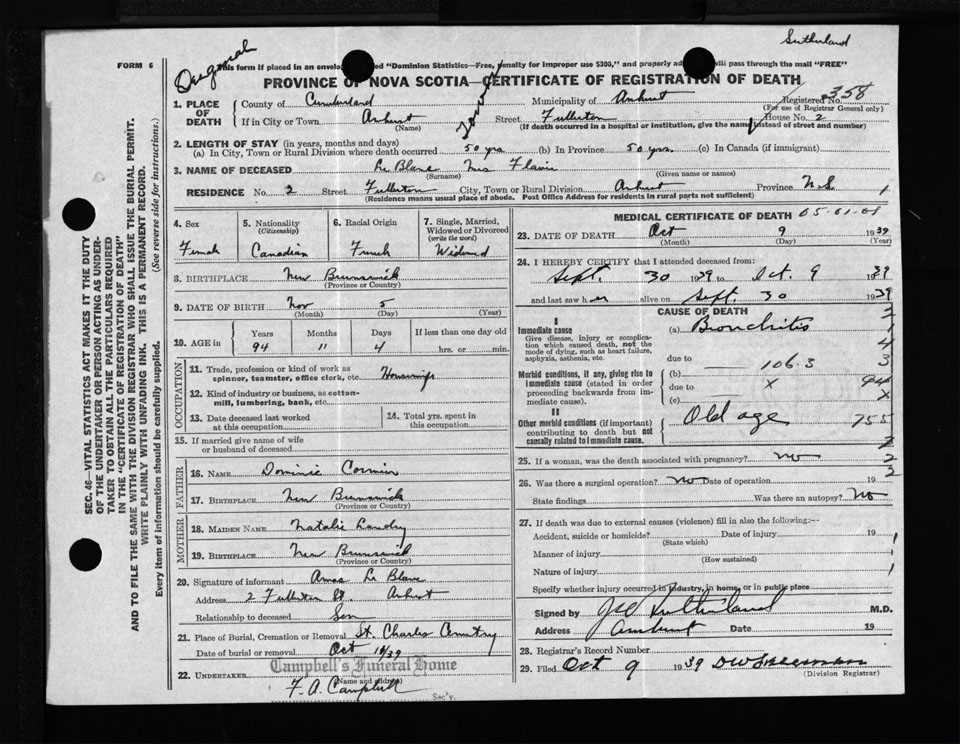 Sutherland
Original
FORM 6
This form if placed in an envelope marked "Dominion Statistics—Free, penalty for improper use $300," and properly addressed will pass through the mail "FREE"
PROVINCE OF NOVA SCOTIA—CERTIFICATE OF REGISTRATION OF DEATH
358
1. PLACE OF DEATH
County of Cumberland Municipality of Amherst Registered No.
(For use of Registrar General only)
If in City or Town Amherst Street Fullerton House No. 2
(Name) (If death occurred in a hospital or institution, give the name instead of street and number)
2. LENGTH OF STAY (in years, months and days)
(a) In City, Town or Rural Division where death occurred 50 yrs (b) In Province 50 yrs. (c) In Canada (if immigrant)
3. NAME OF DECEASED Le Blanc Mrs Flavie
(Surname) (Given name or names)
RESIDENCE No. 2 Street Fullerton City, Town or Rural Division Amherst Province N.S. 1
(Residence means usual place of abode. Post Office Address for residents in rural parts not sufficient)
4. Sex Female
5. Nationality (Citizenship) Canadian
6. Racial Origin French
7. Single, Married, Widowed or Divorced (write the word) Widowed
8. BIRTHPLACE New Brunswick
(Province or Country)
9. DATE OF BIRTH Nov 5
(Month) (Day) (Year)
10. AGE in
Years Months Days If less than one day old
94 11 4 hrs. or min.
OCCUPATION
11. Trade, profession or kind of work as spinner, teamster, office clerk, etc. Housewife
12. Kind of industry or business, as cotton-mill, lumbering, bank, etc.
13. Date deceased last worked at this occupation
14. Total yrs. spent in this occupation
15. If married give name of wife or husband of deceased
FATHER
16. NAME Dominic Cormier
17. BIRTHPLACE New Brunswick
MOTHER
18. MAIDEN NAME Natalie Landry
19. BIRTHPLACE New Brunswick
(Province or Country)
20. Signature of informant Amos Le Blanc
Address 2 Fullerton St. Amherst
Relationship to deceased Son
21. Place of Burial, Cremation or Removal St. Charles Cemetry
Date of burial or removal Oct 10/39
Campbell's Funeral Home
22. UNDERTAKER (Name and address)
F. A. Campbell
Sec'y.
MEDICAL CERTIFICATE OF DEATH 05-01-01
23. DATE OF DEATH Oct 9 1939
(Month) (Day) (Year)
24. I HEREBY CERTIFY that I attended deceased from:
Sept. 30 1939 to Oct. 9 1939
and last saw her alive on Sept. 30 1939
CAUSE OF DEATH
I
Immediate cause (a) Bronchitis
Give disease, injury or complication which caused death, not the mode of dying, such as heart failure, asphyxia, asthenia, etc.
due to
Morbid conditions, if any, giving rise to immediate cause (stated in order proceeding backwards from immediate cause).
(b) 106.3
due to X
(c)
II
Other morbid conditions (if important) contributing to death but not causally related to immediate cause.
Old age
755
25. If a woman, was the death associated with pregnancy? No
26. Was there a surgical operation? No Date of operation 19
State findings Was there an autopsy? No
27. If death was due to external causes (violence) fill in also the following:—
Accident, suicide or homicide? Date of injury 19
(State which)
Manner of injury
(How sustained)
Nature of injury
Specify whether injury occurred in industry, in home, or in public place
Signed by Sutherland M.D.
Address Amherst Date 19
28. Registrar's Record Number
29. Filed Oct 9 1939
(Division Registrar)
SEC. 46—VITAL STATISTICS ACT MAKES IT THE DUTY
OF THE UNDERTAKER OR PERSON ACTING AS UNDERTAKER
TO OBTAIN ALL THE PARTICULARS REQUIRED
IN THE "CERTIFICATE OF REGISTRATION OF DEATH"
AND TO FILE THE SAME WITH THE DIVISION REGISTRAR WHO SHALL ISSUE THE BURIAL PERMIT.
WRITE PLAINLY WITH UNFADING INK. THIS IS A PERMANENT RECORD.
Every item of information should be carefully supplied. (See reverse side for instructions.)